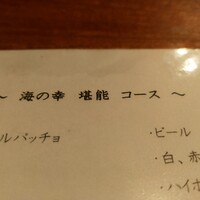 ～ 海の幸 堪能 コース ～
ルパッチョ
・ビール
・白、赤
・ハイボ